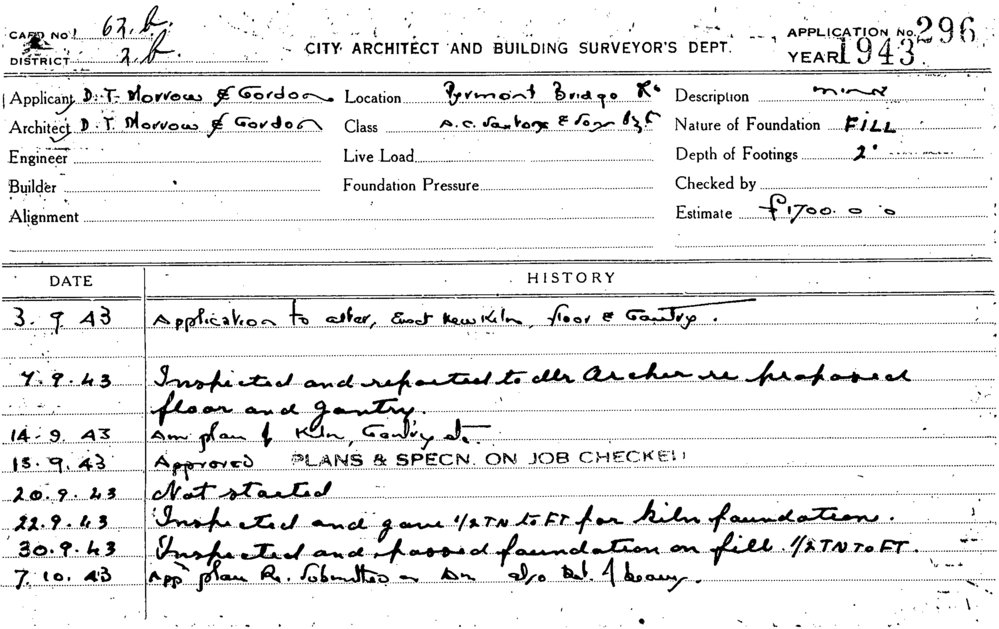 CARD No. 62.b.
DISTRICT 2.b.
CITY ARCHITECT AND BUILDING SURVEYOR'S DEPT.
APPLICATION No. 296
YEAR 1943
Applicant D. T. Morrow & Gordon Location Pyrmont Bridge Rd Description
Architect D. T. Morrow & Gordon Class A.C. Saxton & Sons Nature of Foundation FILL
Engineer Live Load Depth of Footings 2'
Builder Foundation Pressure Checked by
Alignment Estimate £1700. 0 0
DATE HISTORY
3. 9. 43 Application to alter, Erect New Kiln, floor & Gantry.
7. 9. 43 Inspected and reported to Mr Archer re proposed
floor and gantry.
14. 9. 43 Am plan of Kiln, Gantry etc.
15. 9. 43 Approved PLANS & SPECN. ON JOB CHECKED
20. 9. 43 Not started
22. 9. 43 Inspected and gave 1/2 TN to FT for kiln foundation.
30. 9. 43 Inspected and passed foundation on fill 1/2 TN TO FT.
7. 10. 43 App plan Re. Submitted Am also